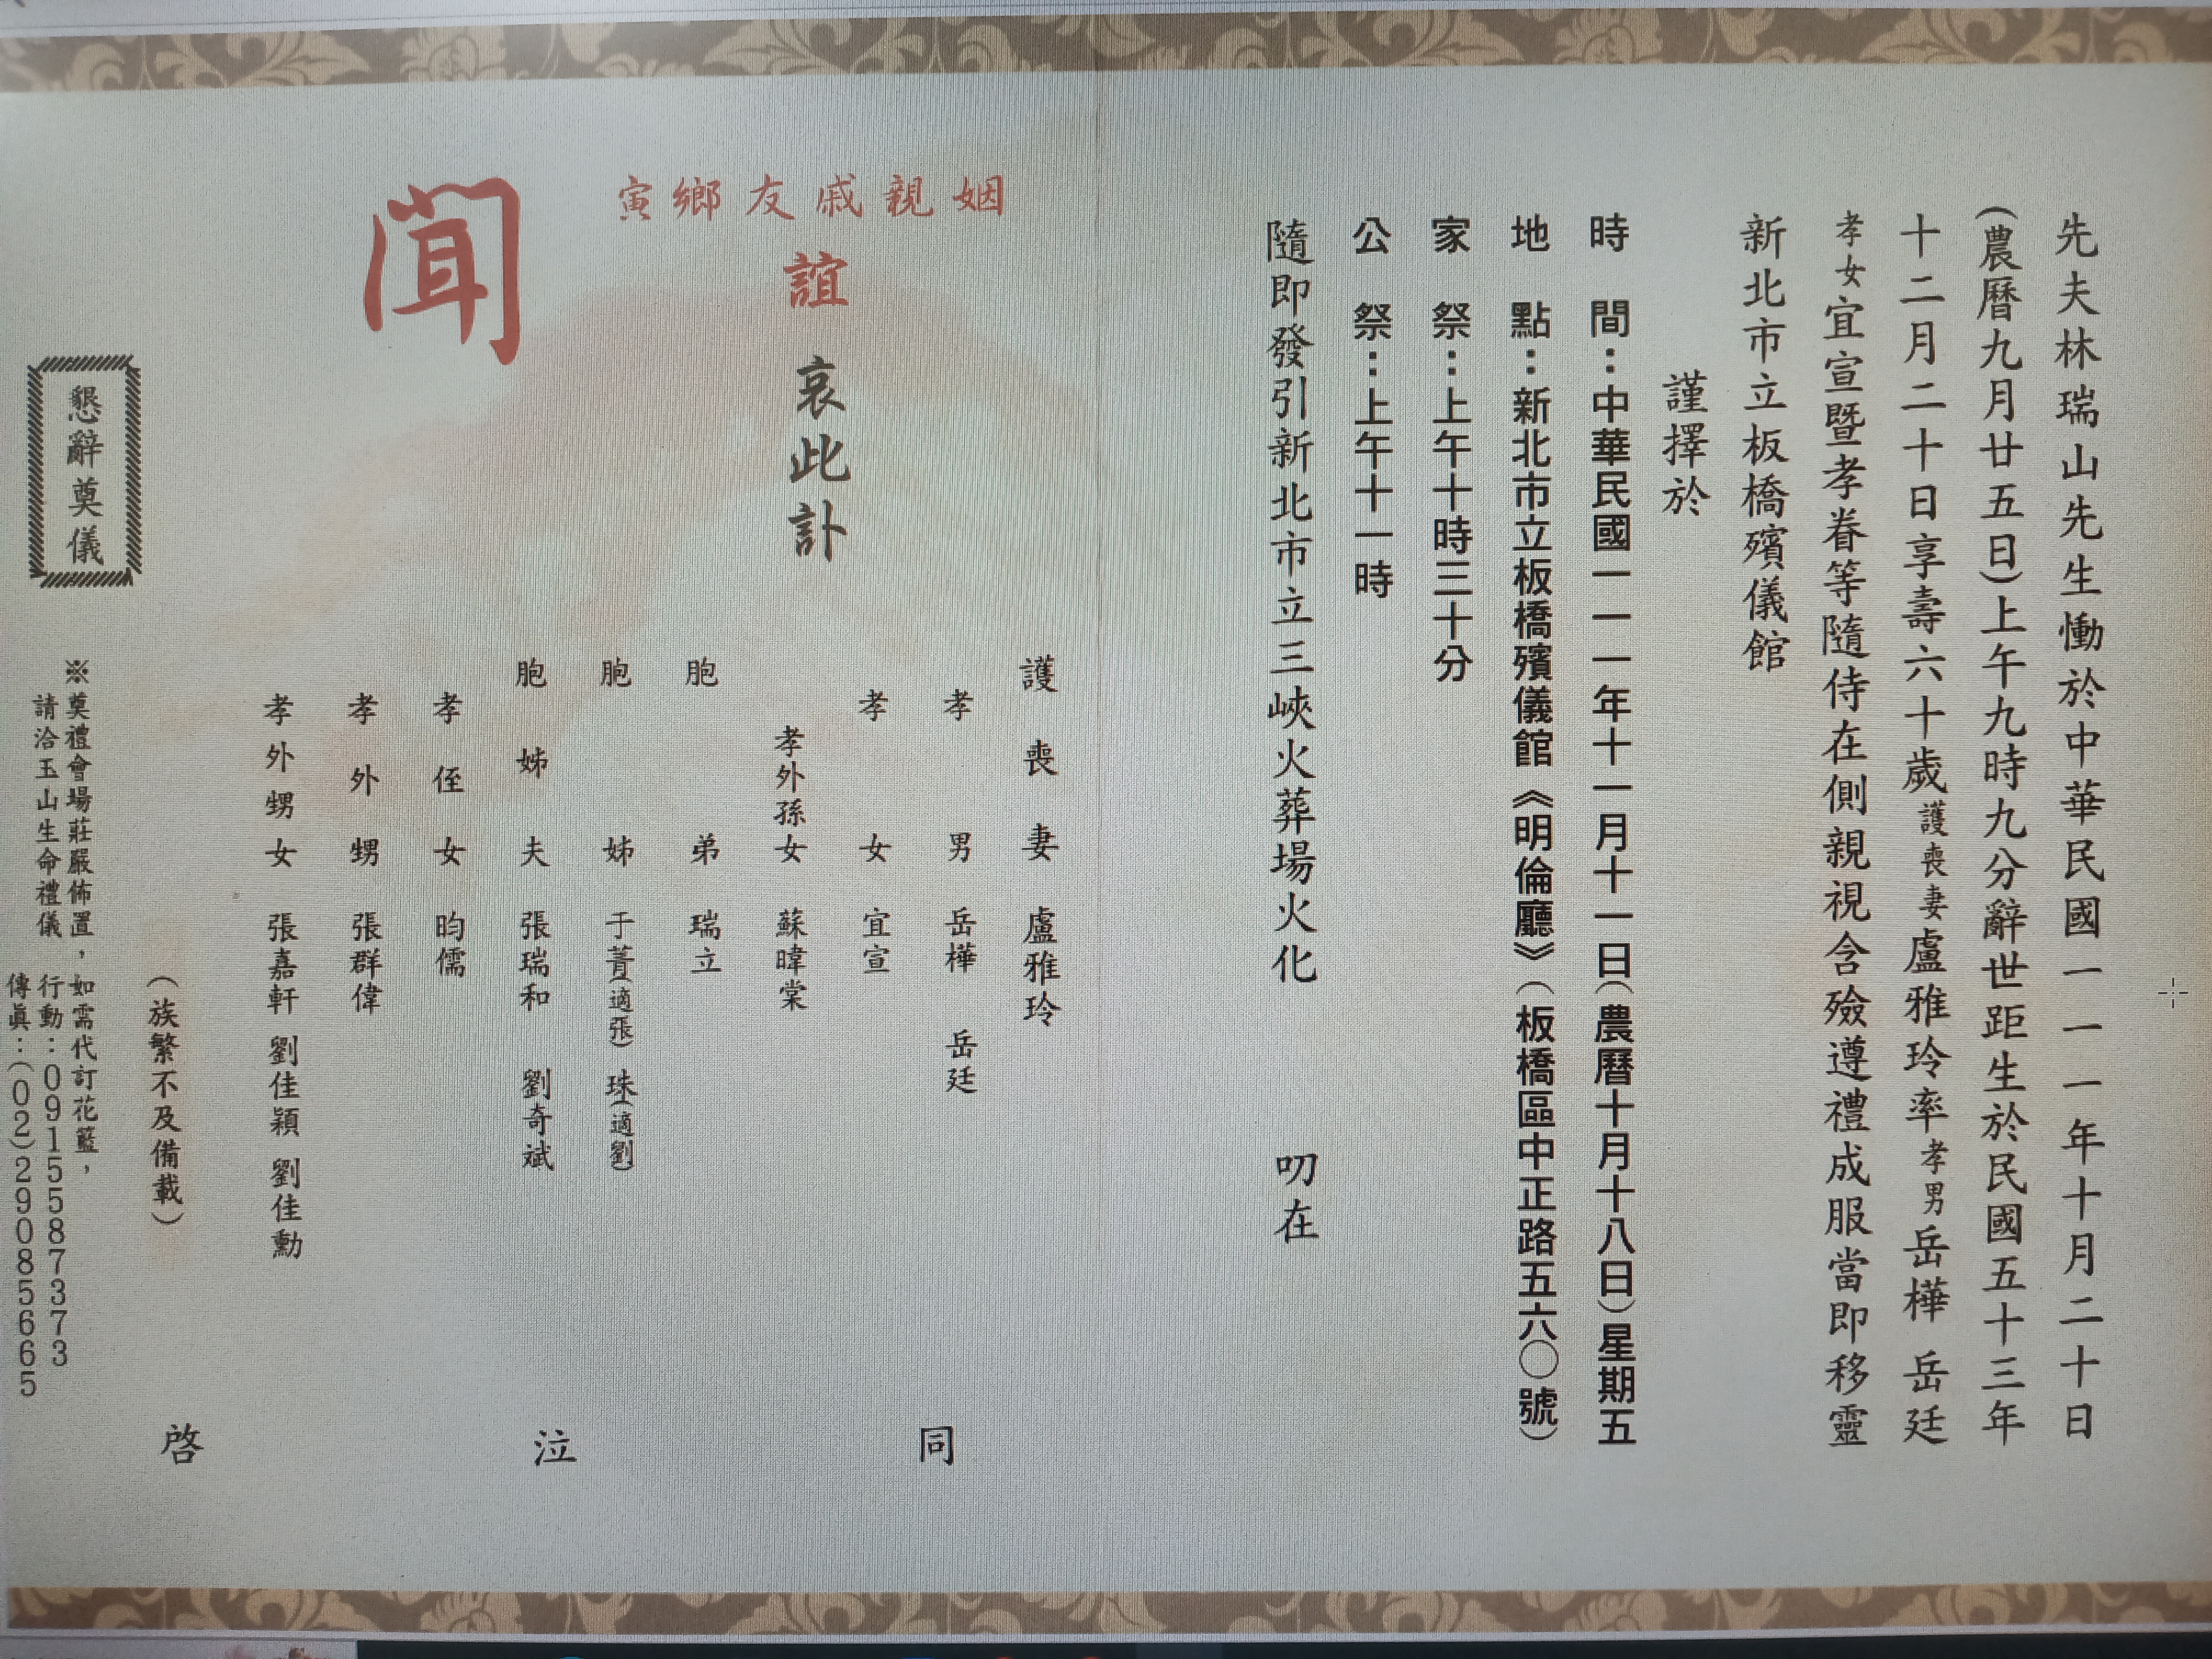 先夫林瑞山先生慟於中華民國一一一年十月二十日
(農曆九月廿五日)上午九時九分辭世距生於民國五十三年
十二月二十日享壽六十歲護喪妻盧雅玲率孝男岳樺 岳廷
孝女宜宣暨孝眷等隨侍在側親視含殮遵禮成服當即移靈
新北市立板橋殯儀館
謹擇於
時 間：中華民國一一一年十一月十一日(農曆十月十八日)星期五
地 點：新北市立板橋殯儀館《明倫廳》(板橋區中正路五六○號)
家 祭：上午十時三十分
公 祭：上午十一時
隨即發引新北市立三峽火葬場火化 叨在
姻親戚友鄉寅
誼
哀此訃
聞
護喪妻 盧雅玲
孝男 岳樺 岳廷
孝女 宜宣
孝外孫女 蘇暐棠
胞弟 瑞立
胞姊 于菁(適張) 珠(適劉)
胞姊夫 張瑞和 劉奇斌
孝侄女 昀儒
孝外甥 張群偉
孝外甥女 張嘉軒 劉佳穎 劉佳勳
(族繁不及備載)
同泣啓
懇辭奠儀
※奠禮會場莊嚴佈置，如需代訂花籃，
請洽玉山生命禮儀 行動：0915587373
傳眞：(02)29085665